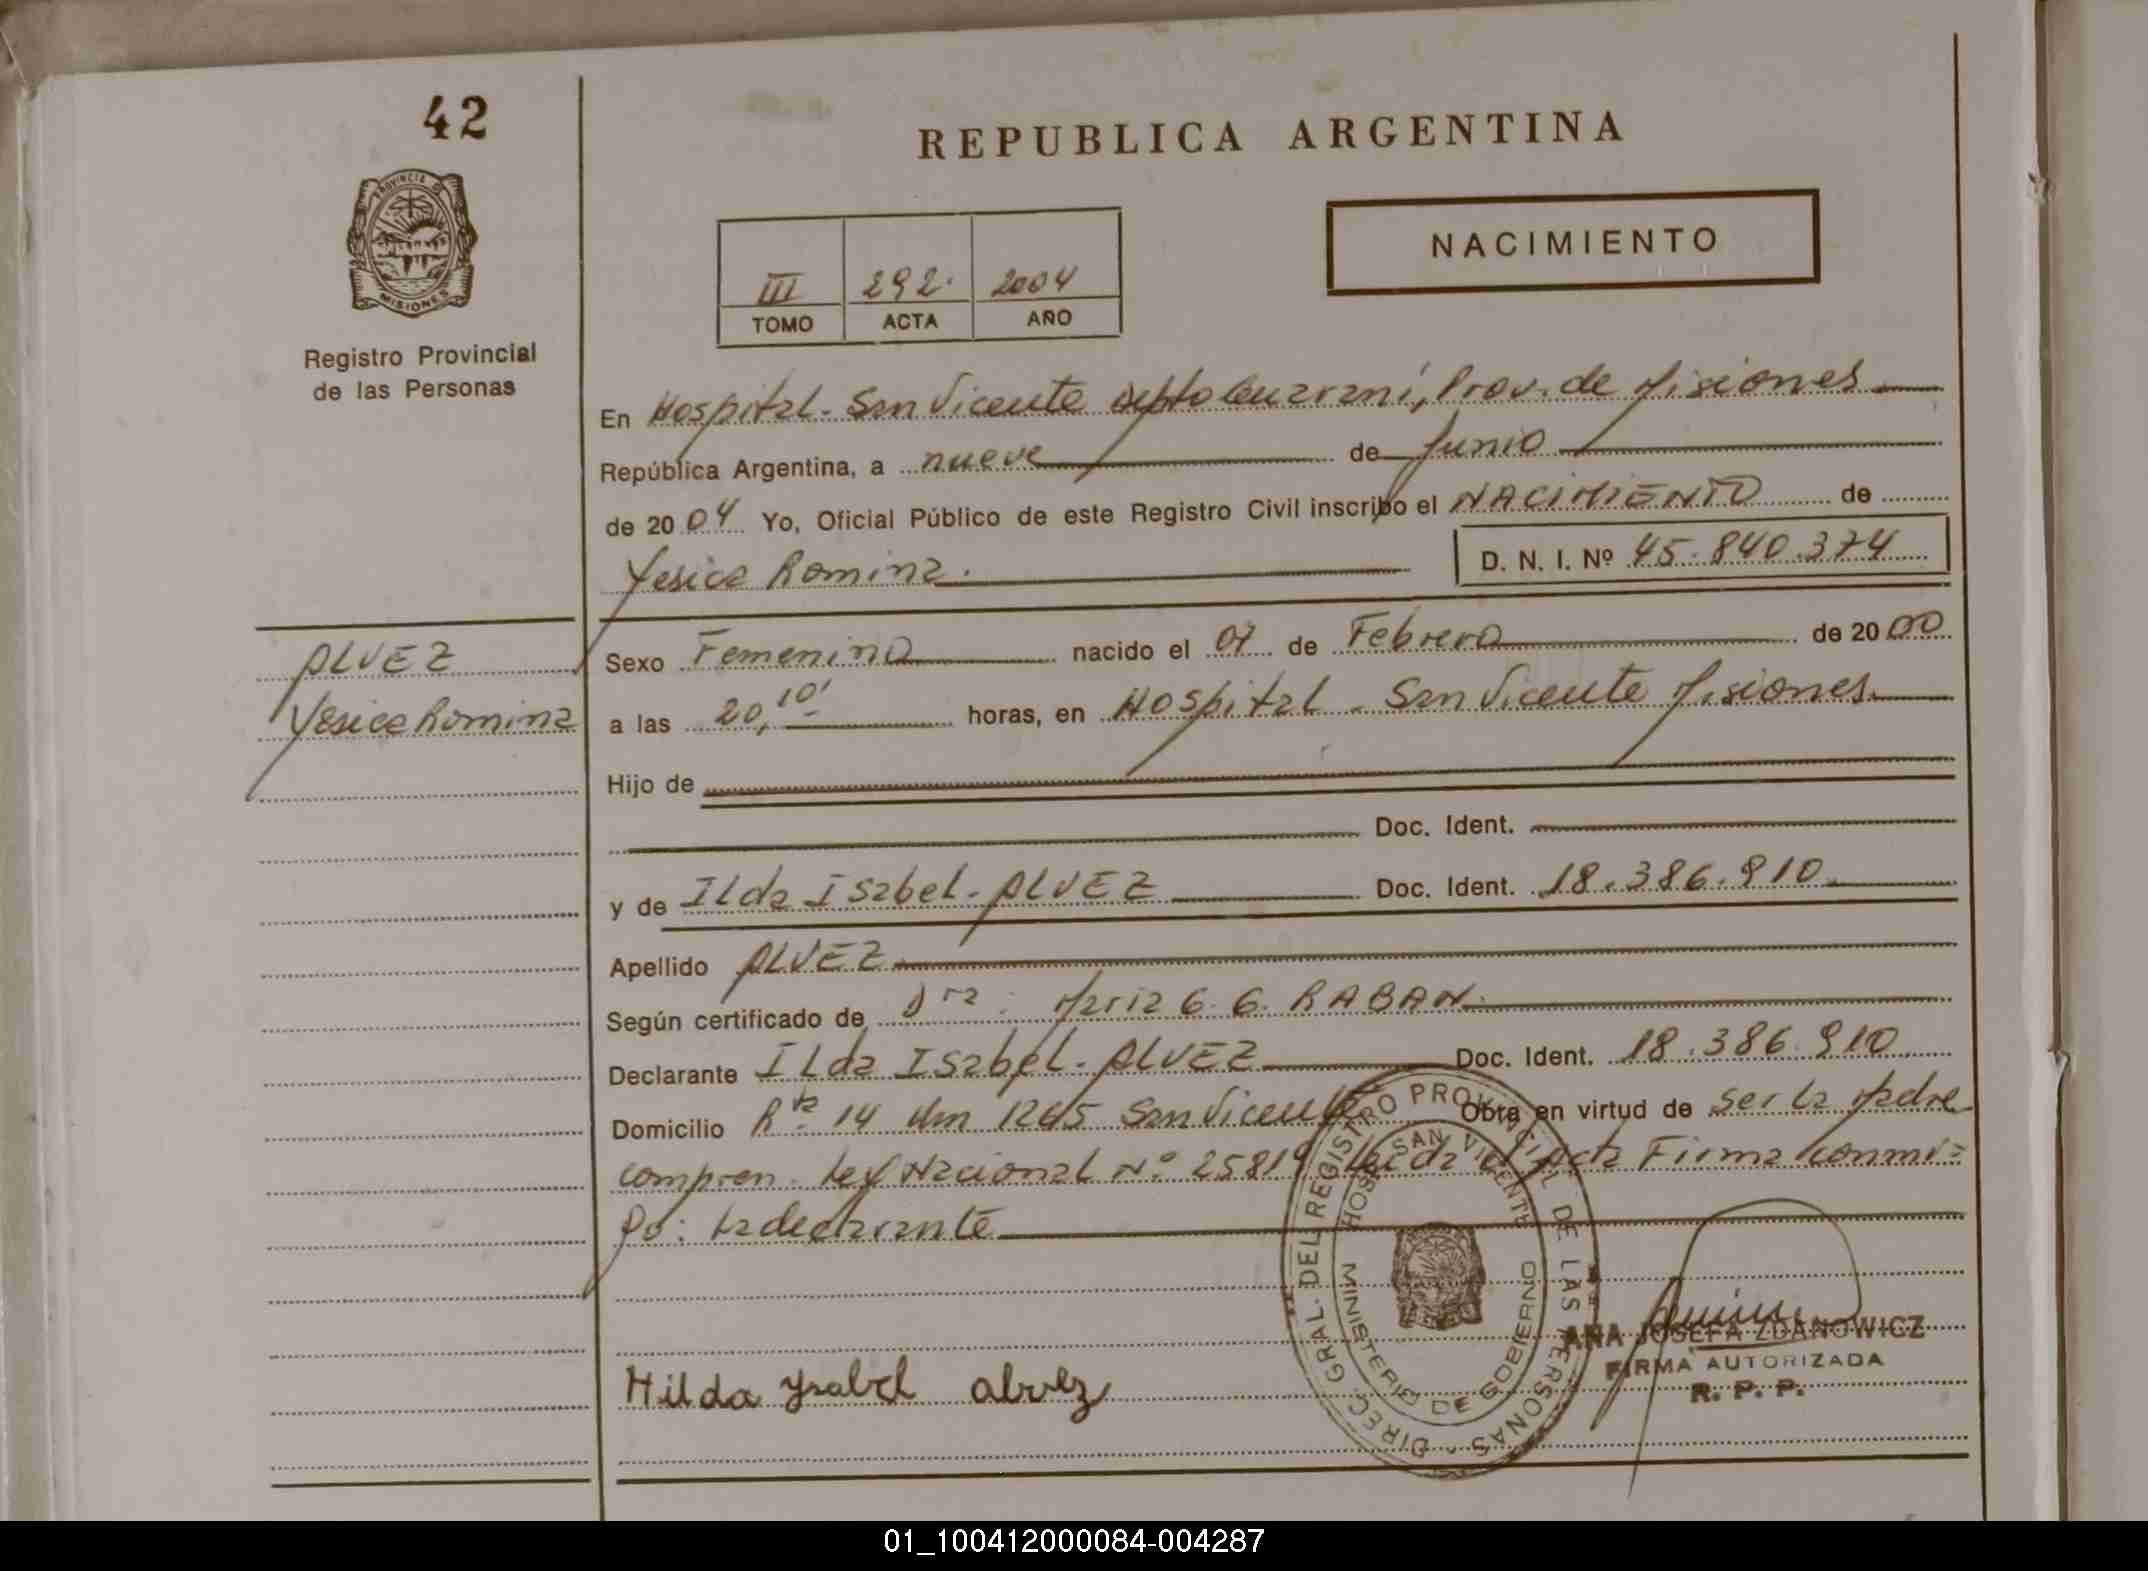 42
REPUBLICA ARGENTINA
PROVINCIA DE
MISIONES
Registro Provincial
de las Personas
NACIMIENTO
III 292. 2004
TOMO ACTA AÑO
En Hospital - San Vicente depto Guarani, Prov. de Misiones
República Argentina, a nueve de Junio
de 2004 Yo, Oficial Público de este Registro Civil inscribo el NACIMIENTO de
Yesica Romina.
D. N. I. Nº 45.840.374
ALVEZ
Yesica Romina
Sexo Femenino nacido el 07 de Febrero de 2000
a las 20,10' horas, en Hospital - San Vicente Misiones
Hijo de
Doc. Ident.
y de Ilda Isabel - ALVEZ Doc. Ident. 18.386.910
Apellido ALVEZ
Según certificado de Dra: Maria G. G. RABAN
Declarante Ilda Isabel - ALVEZ Doc. Ident. 18.386.910
Domicilio Rta 14 Km 1265 San Vicente Obra en virtud de ser la Madre
compren. Ley Nacional Nº 25819 Leida el Acta Firma conmi=
go: La declarante
Hilda Ysabel alvez
DIREC. GRAL. DEL REGISTRO PROVINCIAL DE LAS PERSONAS
HOSP. SAN VICENTE
MINISTERIO DE GOBIERNO
ANA JOSEFA ZDANOWICZ
FIRMA AUTORIZADA
R. P. P.
01_100412000084-004287